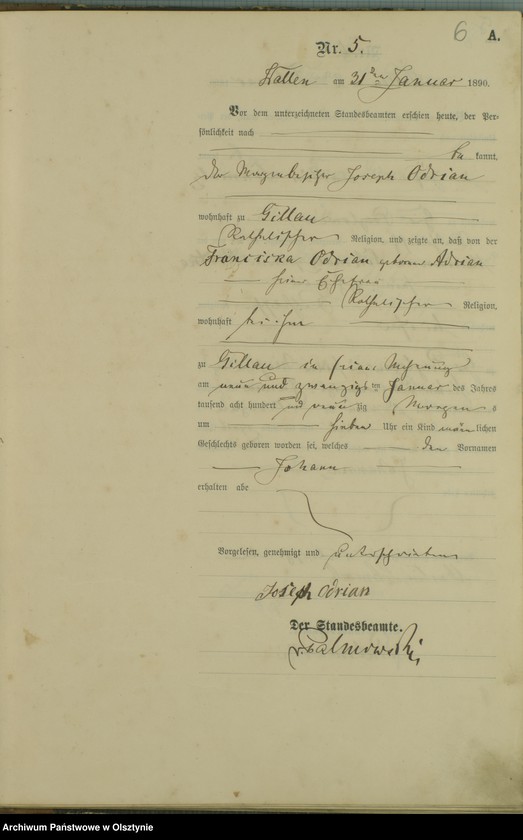 6 A.
Nr. 5.
am 31ten Januar 1890.
Vor dem unterzeichneten Standesbeamten erschien heute, der Per-
sönlichkeit nach
be kannt,
der Joseph Odrian
wohnhaft zu Gillau
Katholischer Religion, und zeigte an, daß von der
Franciska Odrian geborene Adrian
seiner Ehefrau
Katholischer Religion,
wohnhaft bei ihm
zu Gillau in seiner Wohnung
am neun und zwanzigsten Januar des Jahres
tausend acht hundert und neunzig Morgens
um sieben Uhr ein Kind männlichen
Geschlechts geboren worden sei, welches den Vornamen
Johann
erhalten habe
Vorgelesen, genehmigt und unterschrieben
Joseph Odrian
Der Standesbeamte.
v. Palmowski
Archiwum Państwowe w Olsztynie